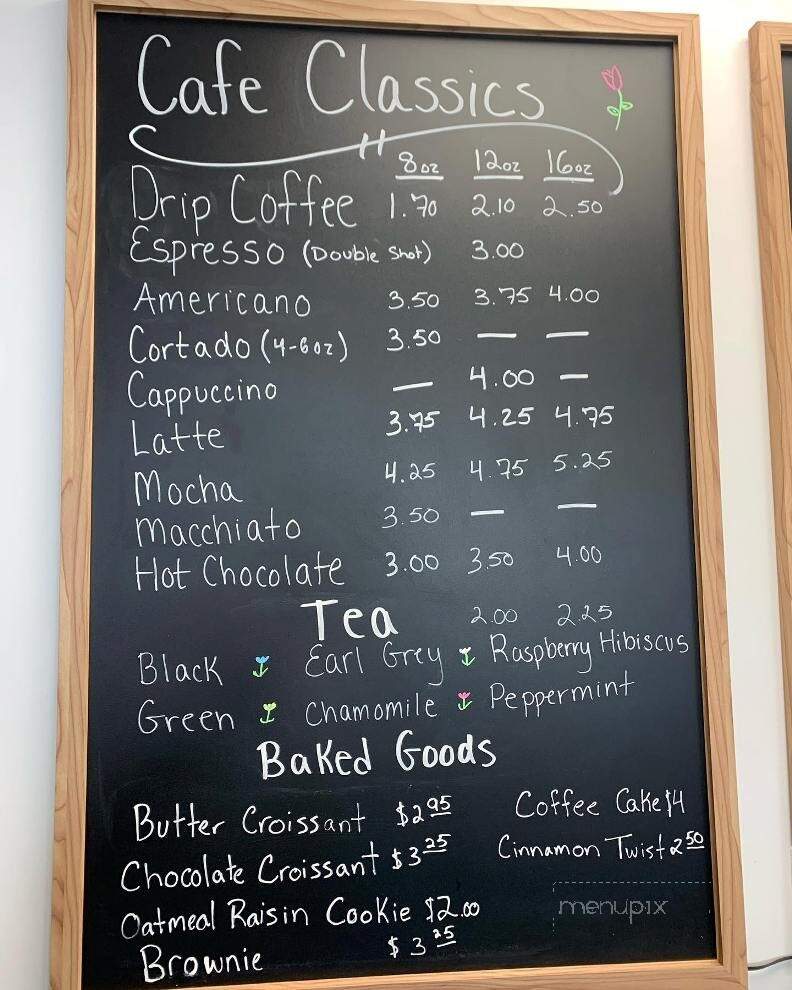 Cafe Classics
8oz 12oz 16oz
Drip Coffee 1.70 2.10 2.50
Espresso (Double Shot) 3.00
Americano 3.50 3.75 4.00
Cortado (4-6oz) 3.50 — —
Cappuccino — 4.00 —
Latte 3.75 4.25 4.75
Mocha 4.25 4.75 5.25
Macchiato 3.50 — —
Hot Chocolate 3.00 3.50 4.00
Tea 2.00 2.25
Black Earl Grey Raspberry Hibiscus
Green Chamomile Peppermint
Baked Goods
Butter Croissant $2 95 Coffee Cake $4
Chocolate Croissant $3 25 Cinnamon Twist 2 50
Oatmeal Raisin Cookie $2.00
Brownie $3 25
menupix